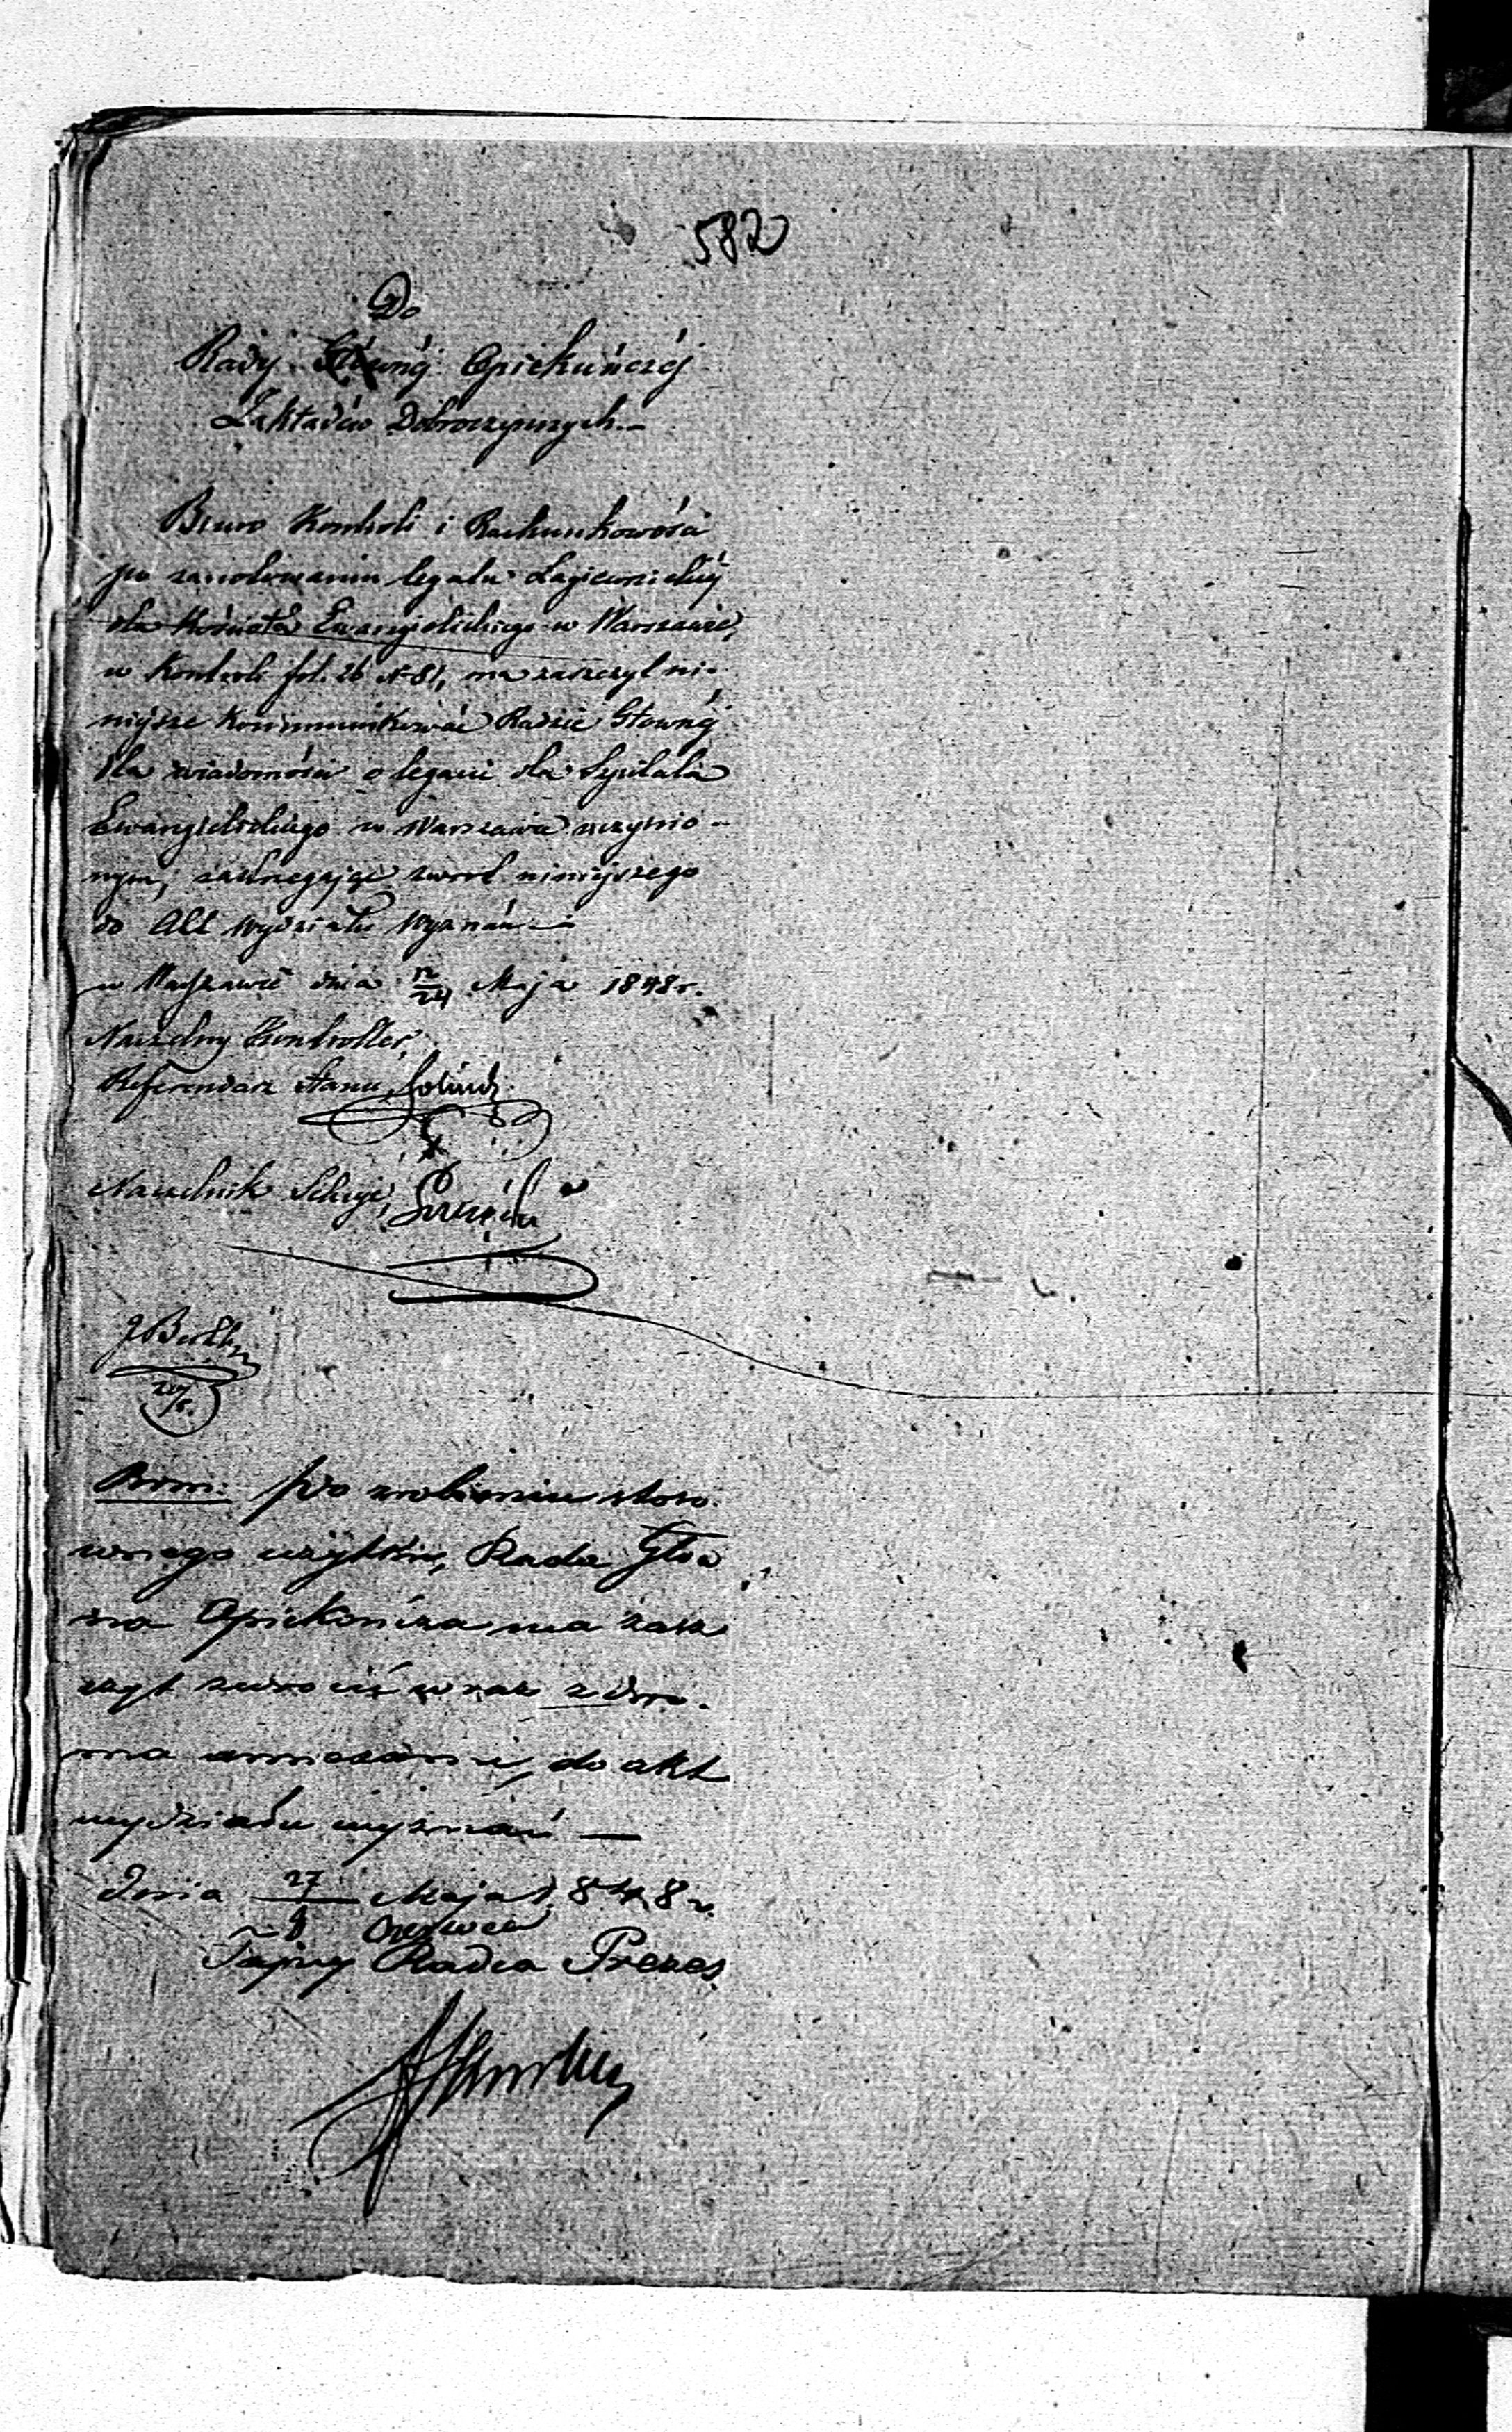 582
Do
Rady Głównéj Opiekuńczéj
Zakładów Dobroczynnych.—
Biuro Kontroli i Rachunkowości
po zanotowaniu legatu
dla Kościoła Ewangielickiego w Warszawie,
w Kontroli fol. 26 N 81, ma zaszczyt ni-
niejsze kommunikować Radzie Głownéj
dla wiadomości o legacie dla Szpitala
Ewangielickiego w Warszawie uczynio-
nym, zastrzegając zwrot niniejszego
do Akt Wydziału Wyznań —
w Warszawie dnia 12/24 Maja 1848 r.
Naczelny Kontroller,
Referendarz Stanu,
Naczelnik Sekcyi,
Brm: Po zrobieniu stoso-
wnego użytku, Rada Głów
na Opiekuńcza ma zasz
czyt zwrócić wraz z dwo-
ma annexami, do akt
wydziału wyznań —
Dnia 27 Maja 1848 r.
8 Czerwca
Tajny Radca Prezes